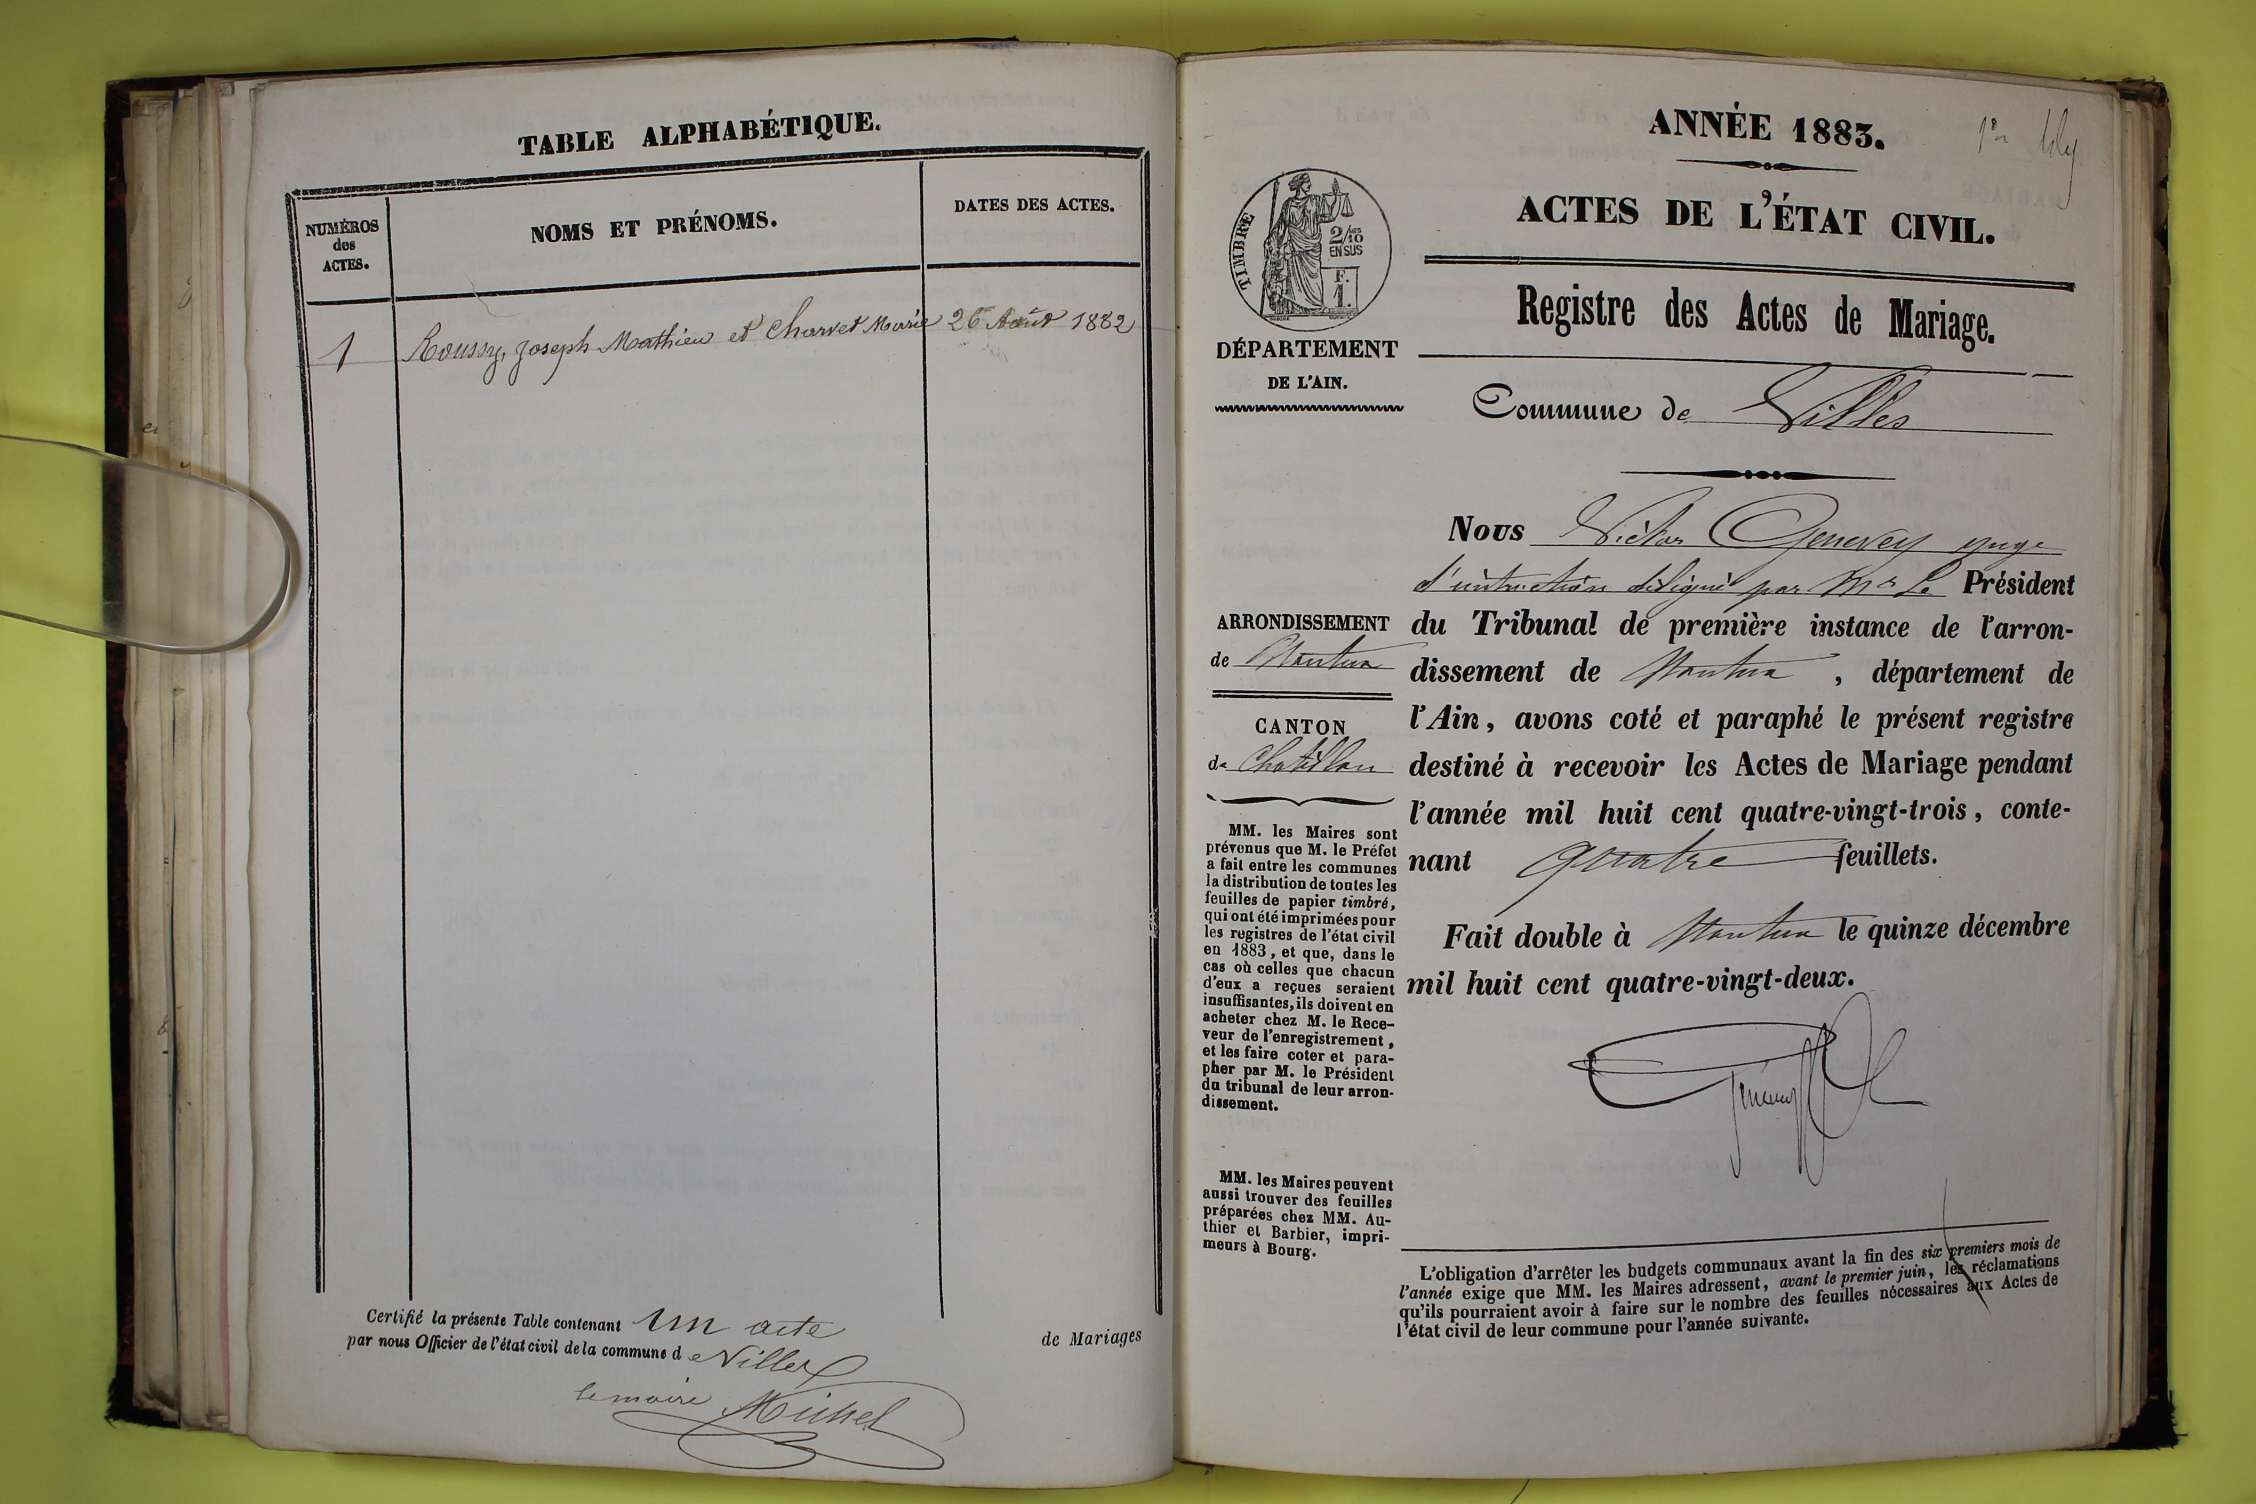 TABLE ALPHABÉTIQUE.
NUMÉROS
des
ACTES.
NOMS ET PRÉNOMS.
DATES DES ACTES.
1 Roussy, Joseph Mathieu et Charvet Marie 26 Août 1882
Certifié la présente Table contenant un acte de Mariages
par nous Officier de l'état civil de la commune de Villes
le maire Michel
ANNÉE 1883.
ACTES DE L'ÉTAT CIVIL.
Registre des Actes de Mariage.
Commune de Villes
TIMBRE
2/10
EN SUS
F.
1.
DÉPARTEMENT
DE L'AIN.
ARRONDISSEMENT
de Nantua
CANTON
de Chatillon
MM. les Maires sont
prévenus que M. le Préfet
a fait entre les communes
la distribution de toutes les
feuilles de papier timbré,
qui ont été imprimées pour
les registres de l'état civil
en 1883, et que, dans le
cas où celles que chacun
d'eux a reçues seraient
insuffisantes, ils doivent en
acheter chez M. le Rece-
veur de l'enregistrement,
et les faire coter et para-
pher par M. le Président
du tribunal de leur arron-
dissement.
MM. les Maires peuvent
aussi trouver des feuilles
préparées chez MM. Au-
thier et Barbier, impri-
meurs à Bourg.
Nous Victor Genevey juge
d'instruction délégué par Mr Le Président
du Tribunal de première instance de l'arron-
dissement de Nantua, département de
l'Ain, avons coté et paraphé le présent registre
destiné à recevoir les Actes de Mariage pendant
l'année mil huit cent quatre-vingt-trois, conte-
nant quatre feuillets.
Fait double à Nantua le quinze décembre
mil huit cent quatre-vingt-deux.
L'obligation d'arrêter les budgets communaux avant la fin des six premiers mois de
l'année exige que MM. les Maires adressent, avant le premier juin, les réclamations
qu'ils pourraient avoir à faire sur le nombre des feuilles nécessaires aux Actes de
l'état civil de leur commune pour l'année suivante.